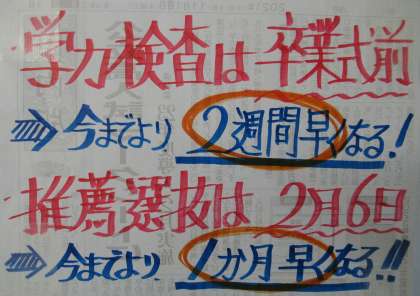 学力検査は 卒業式前
⇒ 今までより 2週間早くなる!
推薦選抜は 2月6日
⇒ 今までより 1か月早くなる!!